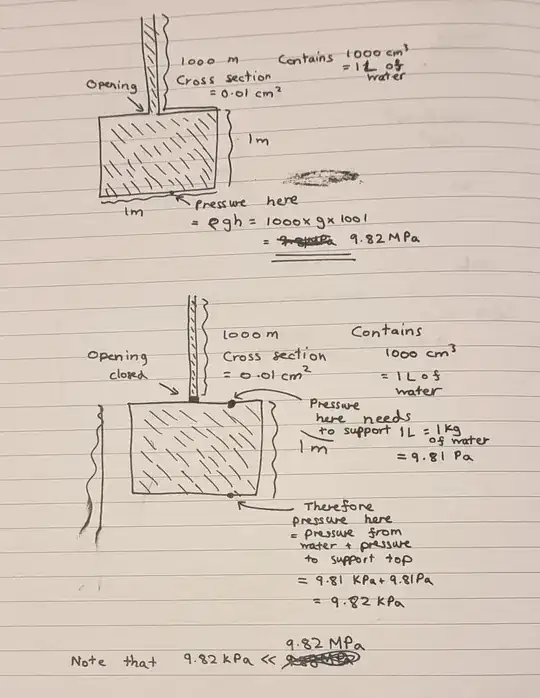 1000 m
Contains 1000 cm³
= 1L of
water
Opening
Cross section
= 0.01 cm²
1m
1m
Pressure here
= ρgh = 1000 × g × 1001
= 9.82 MPa
1000 m
Contains
Opening
closed
Cross section
= 0.01 cm²
1000 cm³
= 1L of
water
Pressure
here needs
to support 1L = 1kg
of water
= 9.81 Pa
1m
Therefore
pressure here
= pressure from
water + pressure
to support top
= 9.81 KPa + 9.81Pa
= 9.82 KPa
9.82 MPa
Note that 9.82 kPa <<